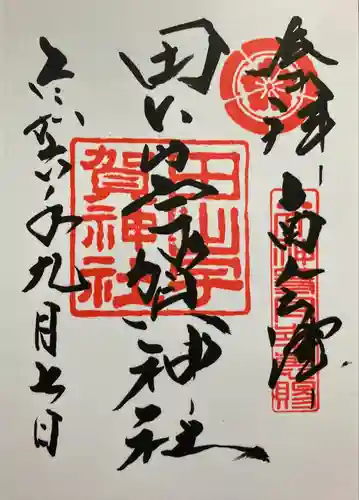 奉拝
南会津
田出宇賀神社
田出宇
賀神社
令和六年九月七日